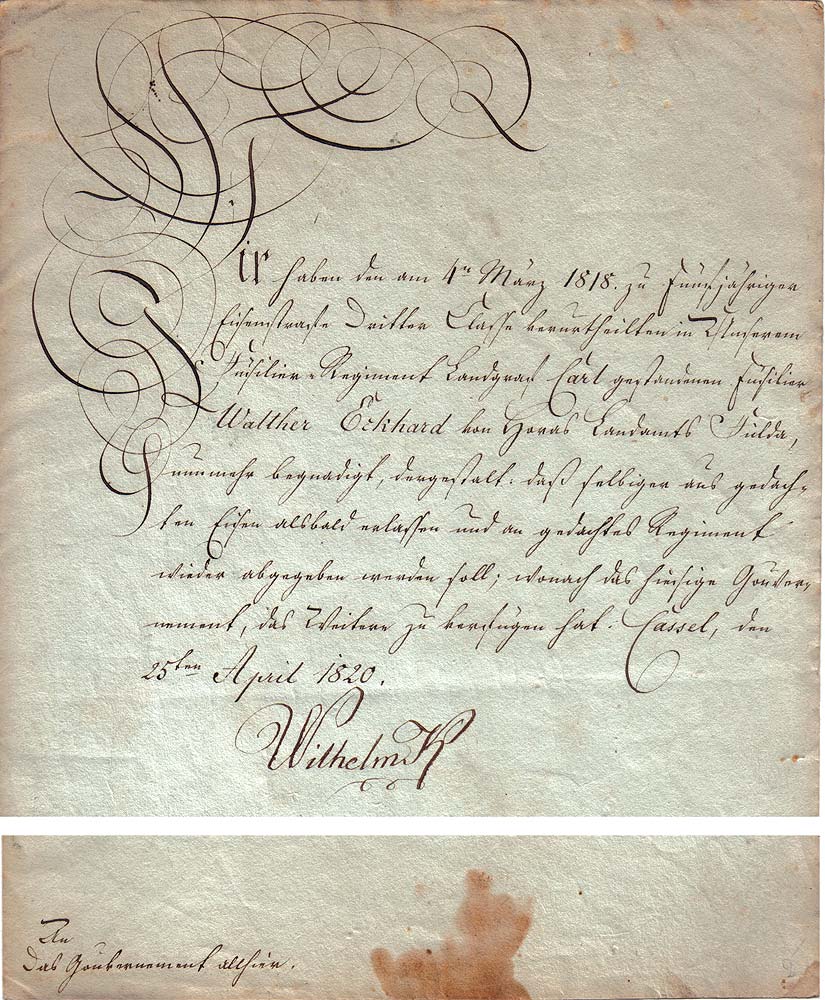 Wir haben den am 4ten März 1818. zu fünfjähriger
Eisenstrafe dritter Classe verurtheilten in Unserem
Füsilier-Regiment Landgraf Carl gestandenen Füsilier
Walther Eckhard von Horas Landamts Fulda,
nunmehr begnadigt, dergestalt: daß selbiger aus gedach-
ten Eisen alsbald erlassen und an gedachtes Regiment
wieder abgegeben werden soll; wonach das hiesige Gouver-
nement, das Weitere zu verfügen hat. Cassel, den
25ten April 1820.
Wilhelm K
An
das Gouvernement allhier.